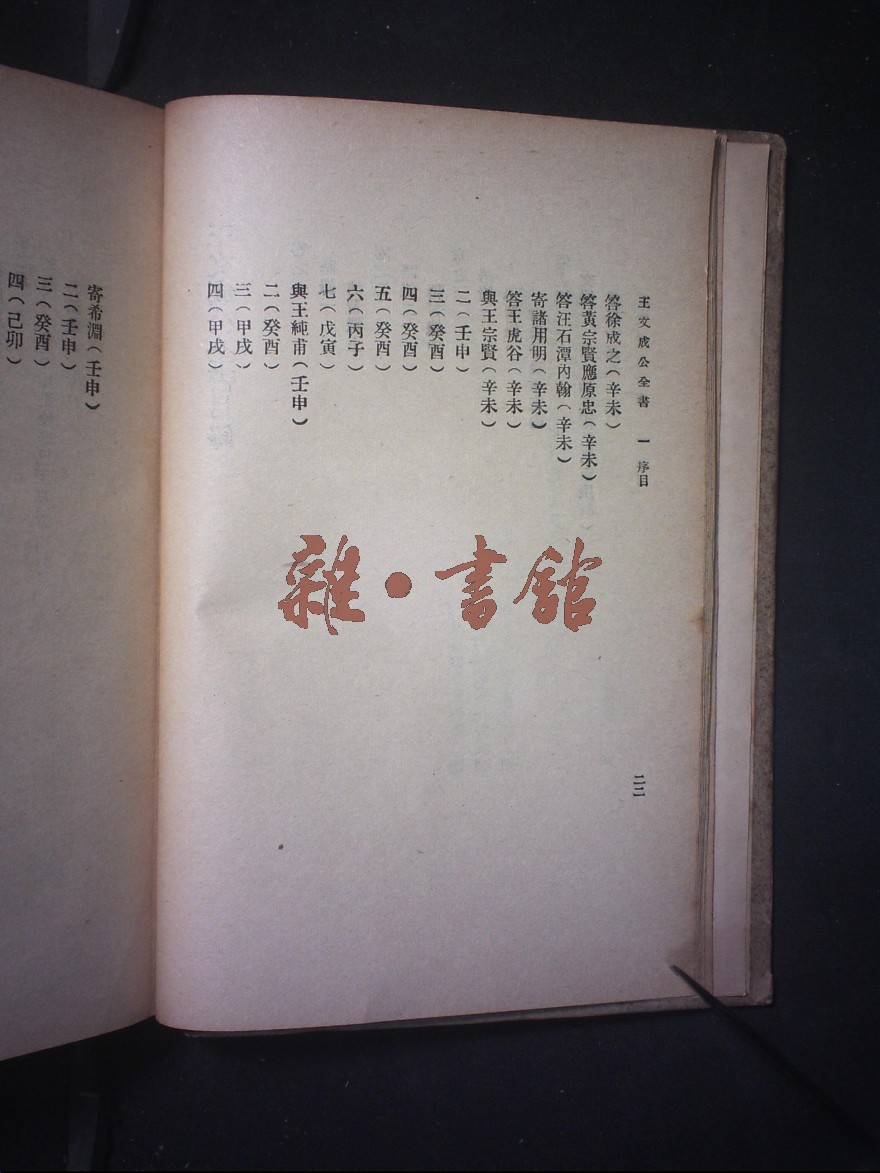 王文成公全書 一 序目
答徐成之(辛未)
答黃宗賢應原忠(辛未)
答汪石潭內翰(辛未)
寄諸用明(辛未)
答王虎谷(辛未)
與王宗賢(辛未)
二(壬申)
三(癸酉)
四(癸酉)
五(癸酉)
六(丙子)
七(戊寅)
與王純甫(壬申)
二(癸酉)
三(甲戌)
四(甲戌)
二二
寄希淵(壬申)
二(壬申)
三(癸酉)
四(己卯)
雜·書館